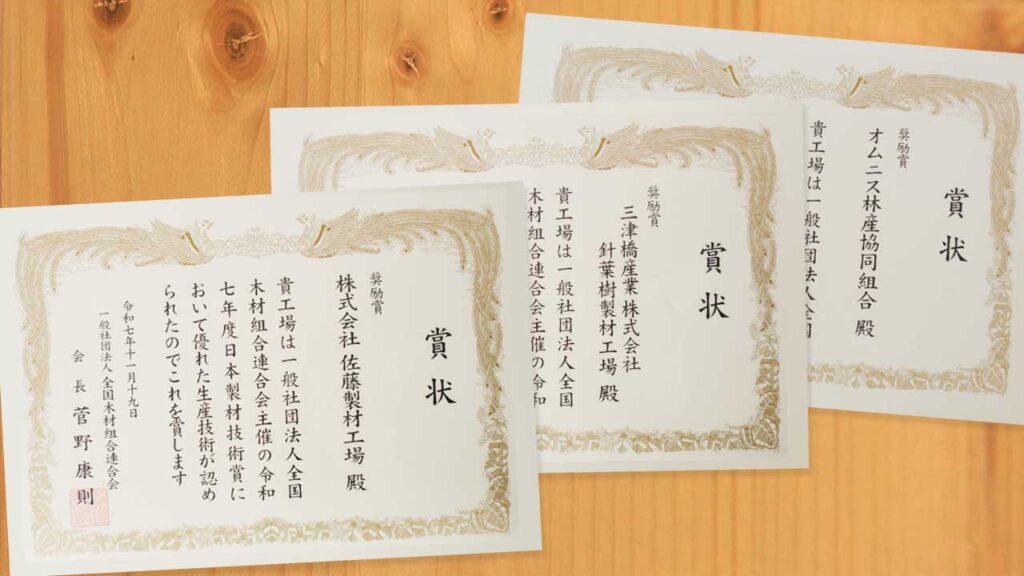 賞状
奨励賞
株式会社 佐藤製材工場 殿
貴工場は一般社団法人全国
木材組合連合会主催の令和
七年度日本製材技術賞に
おいて優れた生産技術が認め
られたのでこれを賞します
令和七年十一月十九日
一般社団法人 全国木材組合連合会
会長 菅野康則
賞状
奨励賞
三津橋産業 株式会社
針葉樹製材工場 殿
貴工場は一般社団法人全国
木材組合連合会主催の令和
賞状
奨励賞
オムニス林産協同組合 殿
貴工場は一般社団法人全国